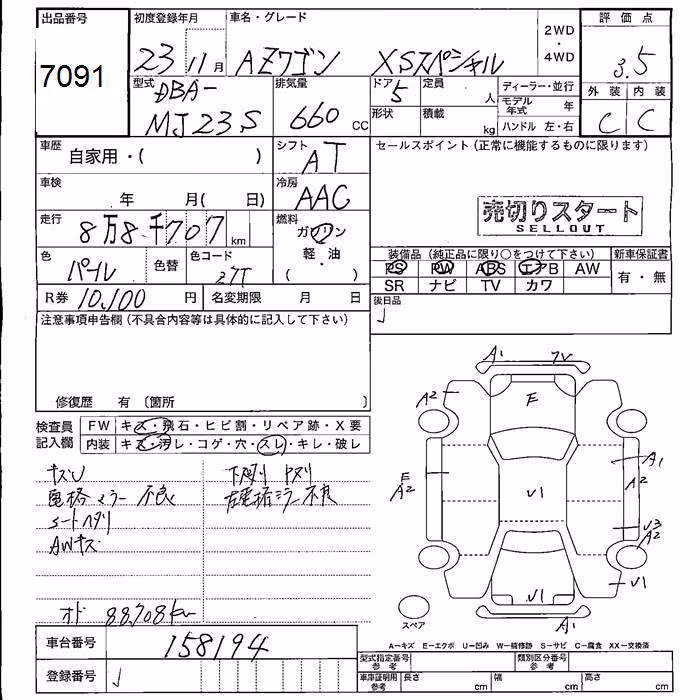 出品番号 初度登録年月 車名・グレード 2WD ・ 4WD 評価点
7091 23 11月 AZワゴン XSスペシャル 3.5
型式 DBA- MJ23S 排気量 660 CC ドア 5 定員 人 ディーラー・並行 外装 内装
形状 積載 kg モデル年式 年 C C
ハンドル 左・右
車歴 自家用・( ) シフト AT セールスポイント(正常に機能するものに限ります)
車検 年 月( 日) 冷房 AAC
売切りスタート
SELLOUT
走行 8万8千707km 燃料 ガソリン
軽・油
( )
色 パール 色替 色コード Z7T
装備品(純正品に限り○をつけて下さい) 新車保証書
PS PW ABS エアB AW 有・無
SR ナビ TV カワ
R券 10,100 円 名変期限 月 日 後日品
注意事項申告欄(不具合内容等は具体的に記入して下さい)
修復歴 有〔箇所 〕
検査員 記入欄 FW キズ・飛石・ヒビ割・リペア跡・X要
内装 キズ・汚レ・コゲ・穴・スレ・キレ・破レ
キズU 下廻リ
電格ミラー不良 左電格ミラー不良
シートヘタリ
AWキズ
オド 88,708km
A1 7V
A2 E
E A2 V1 A1 A2
V3 A2
V1 V1
A1
スペア
A=キズ E=エクボ U=凹み W=補修跡 S=サビ C=腐食 XX=交換済
車台番号 158194
登録番号
型式指定番号 参考 類別区分番号 参考
車庫証明用 参考 長さ cm 幅 cm 高さ cm